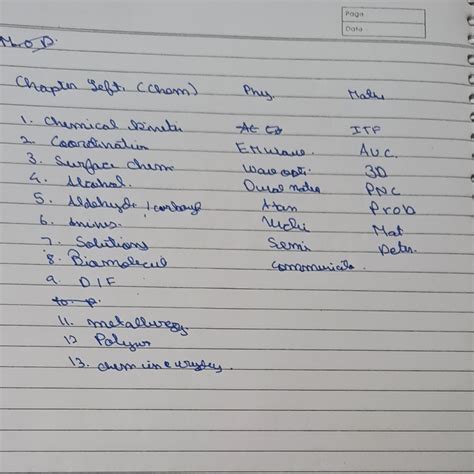 Page
Date
M.O.D.
Chapter Left. (Chem) Phy. Maths
1. Chemical Kinetics ITF
2. Coordination EM wave. AUC.
3. Surface Chem Wave opti. 3D
4. Alcohol. Dual natu PNC
5. Aldehyde / carboxy Atom Prob
6. Amins. Nucli Mat
7. Solutions Semi Deter.
8. Biomolecul communicatn.
9. D|F
10. p.
11. metallurgy.
12 Polymr
13. chem in everyday.